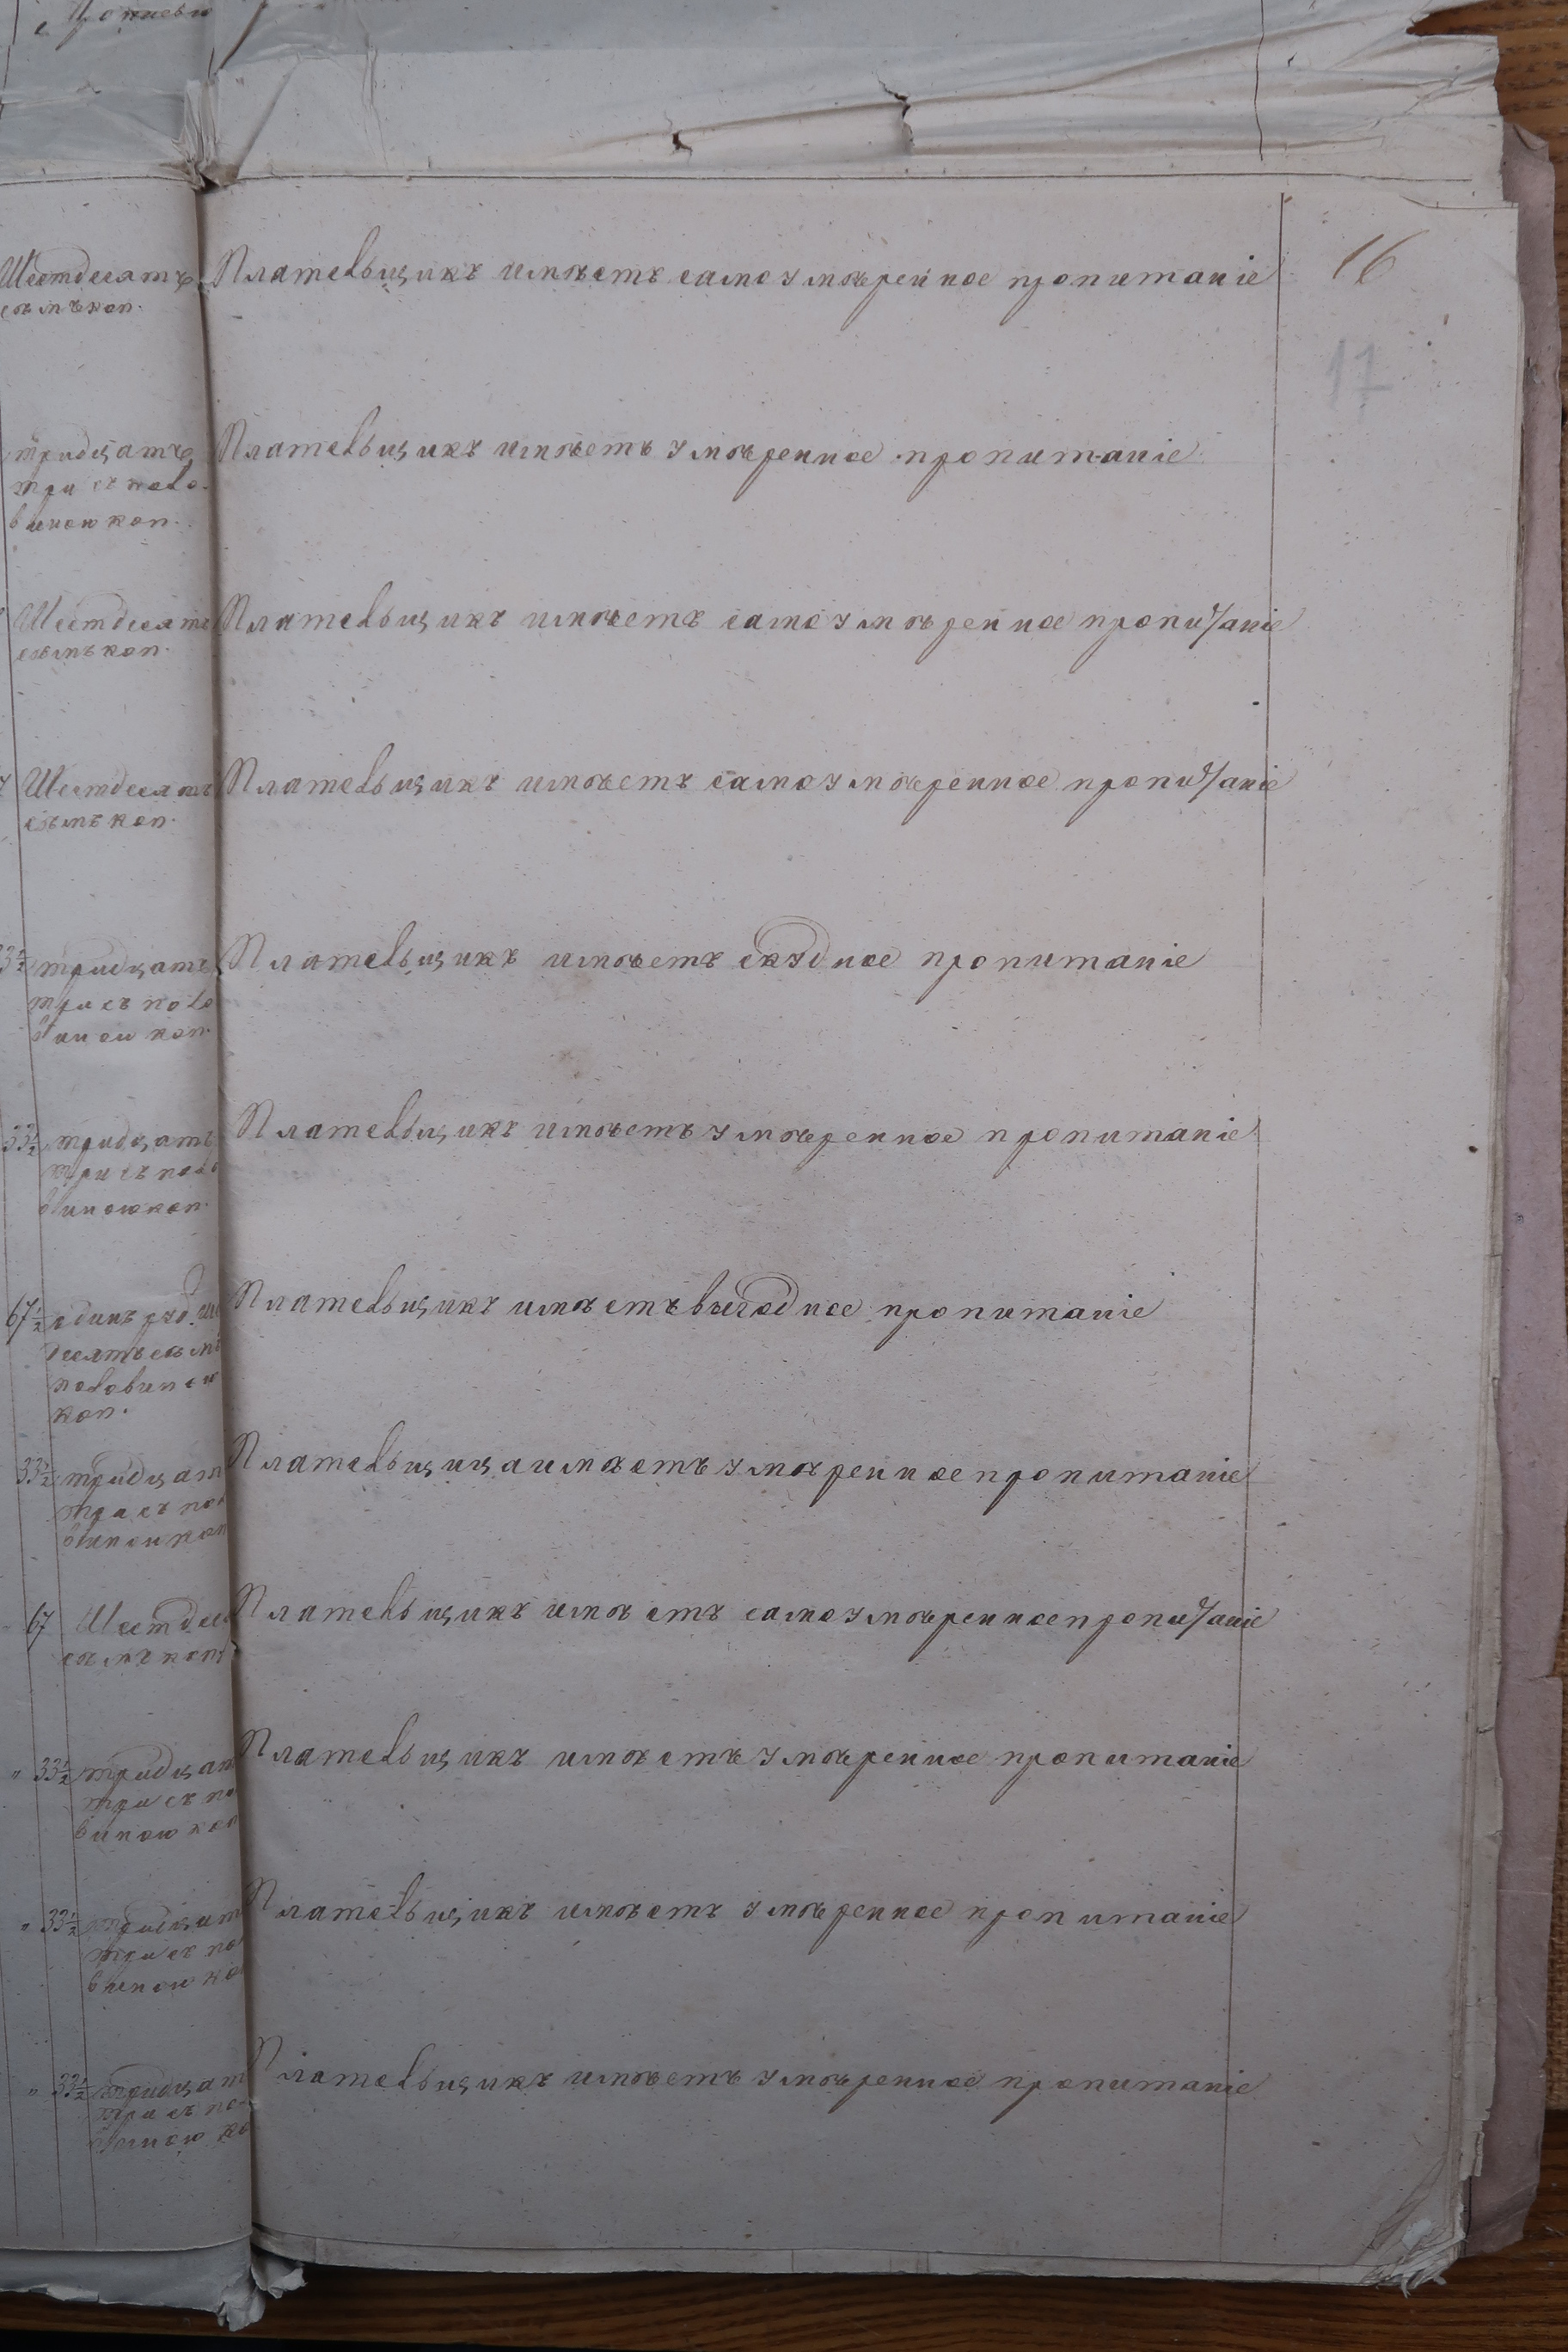 16
17
Шестдесятъ
семъ коп.
Плательщикъ имѣетъ самоумѣренное пропитаніе
тридцать
три съ поло-
виною коп.
Плательщикъ имѣетъ умѣренное пропитаніе
Шестдесятъ
семъ коп.
Плательщикъ имѣетъ самоумѣренное пропитаніе
Шестдесятъ
семъ коп.
Плательщикъ имѣетъ самоумѣренное пропитаніе
33½ тридцать
три съ поло
виною коп.
Плательщикъ имѣетъ скудное пропитаніе
33½ тридцать
три съ поло
виною коп.
Плательщикъ имѣетъ умѣренное пропитаніе
67½ одинъ руб. ше
десятъ семъ
половиною
коп.
Плательщикъ имѣетъ выгодное пропитаніе
33½ тридцат
три съ пол
виною коп
Плательщица имѣетъ умѣренное пропитаніе
67 Шестдес
семъ коп
Плательщикъ имѣетъ самоумѣренное пропитаніе
" 33½ тридцат
три съ по
виною коп
Плательщикъ имѣетъ умѣренное пропитаніе
" 33½ тридцат
три съ по
виною ко
Плательщикъ имѣетъ умѣренное пропитаніе
" 33½ тридцат
три съ по-
виною ко
Плательщикъ имѣетъ умѣренное пропитаніе